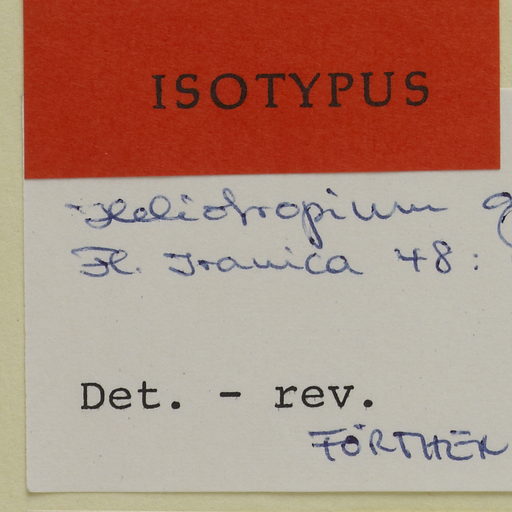 ISOTYPUS
Heliotropium
Fl. Iranica 48:
Det. - rev.
FÖRTHER